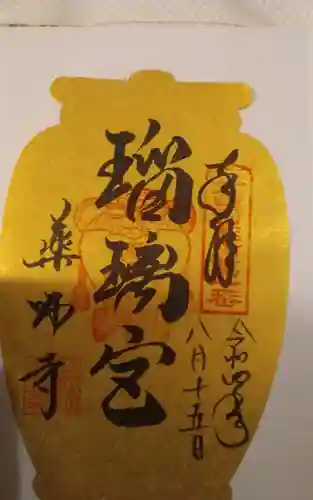 奉拝
令和四年
八月十五日
瑠璃宮
薬师寺